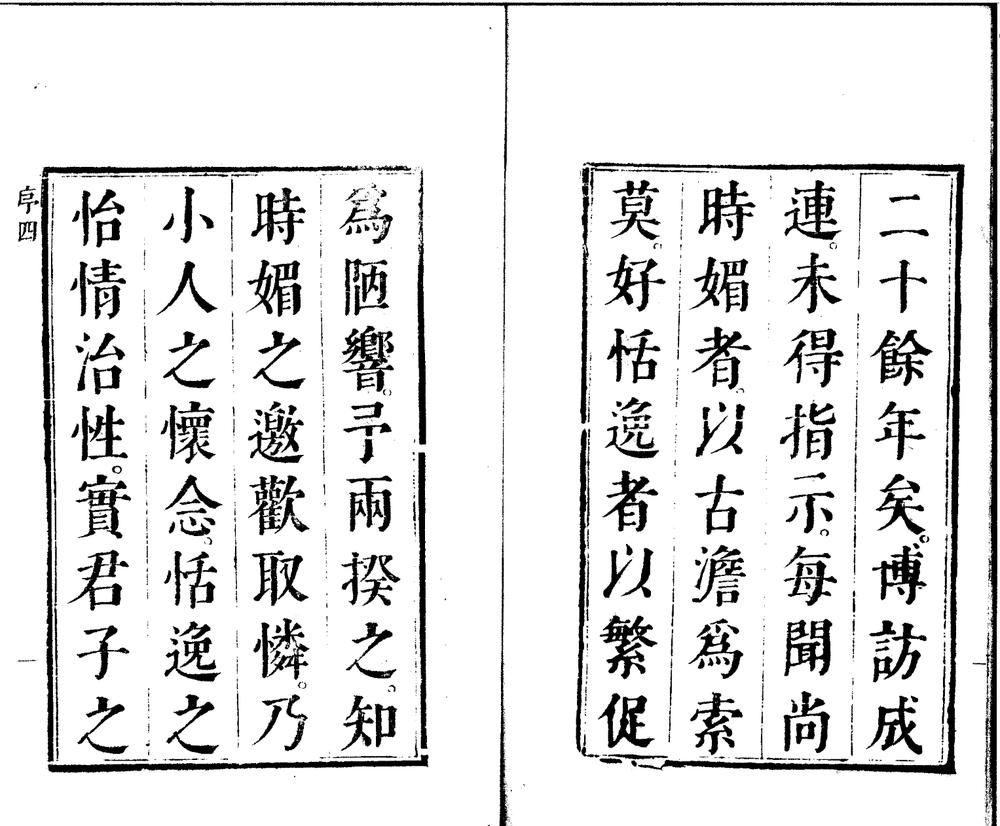 二十餘年矣。博訪成
連。未得指示。每聞尚
時媚者。以古澹爲索
莫。好恬逸者以繁促
爲陋響。予兩揆之。知
時媚之邀歡取憐。乃
小人之懷念。恬逸之
怡情治性。實君子之
序四